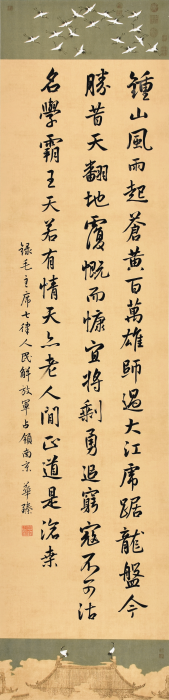 鍾山風雨起蒼黃百萬雄師過大江虎踞龍盤今
勝昔天翻地覆慨而慷宜將剩勇追窮寇不可沽
名學霸王天若有情天亦老人間正道是滄桑
錄毛主席七律人民解放軍占領南京 華臻